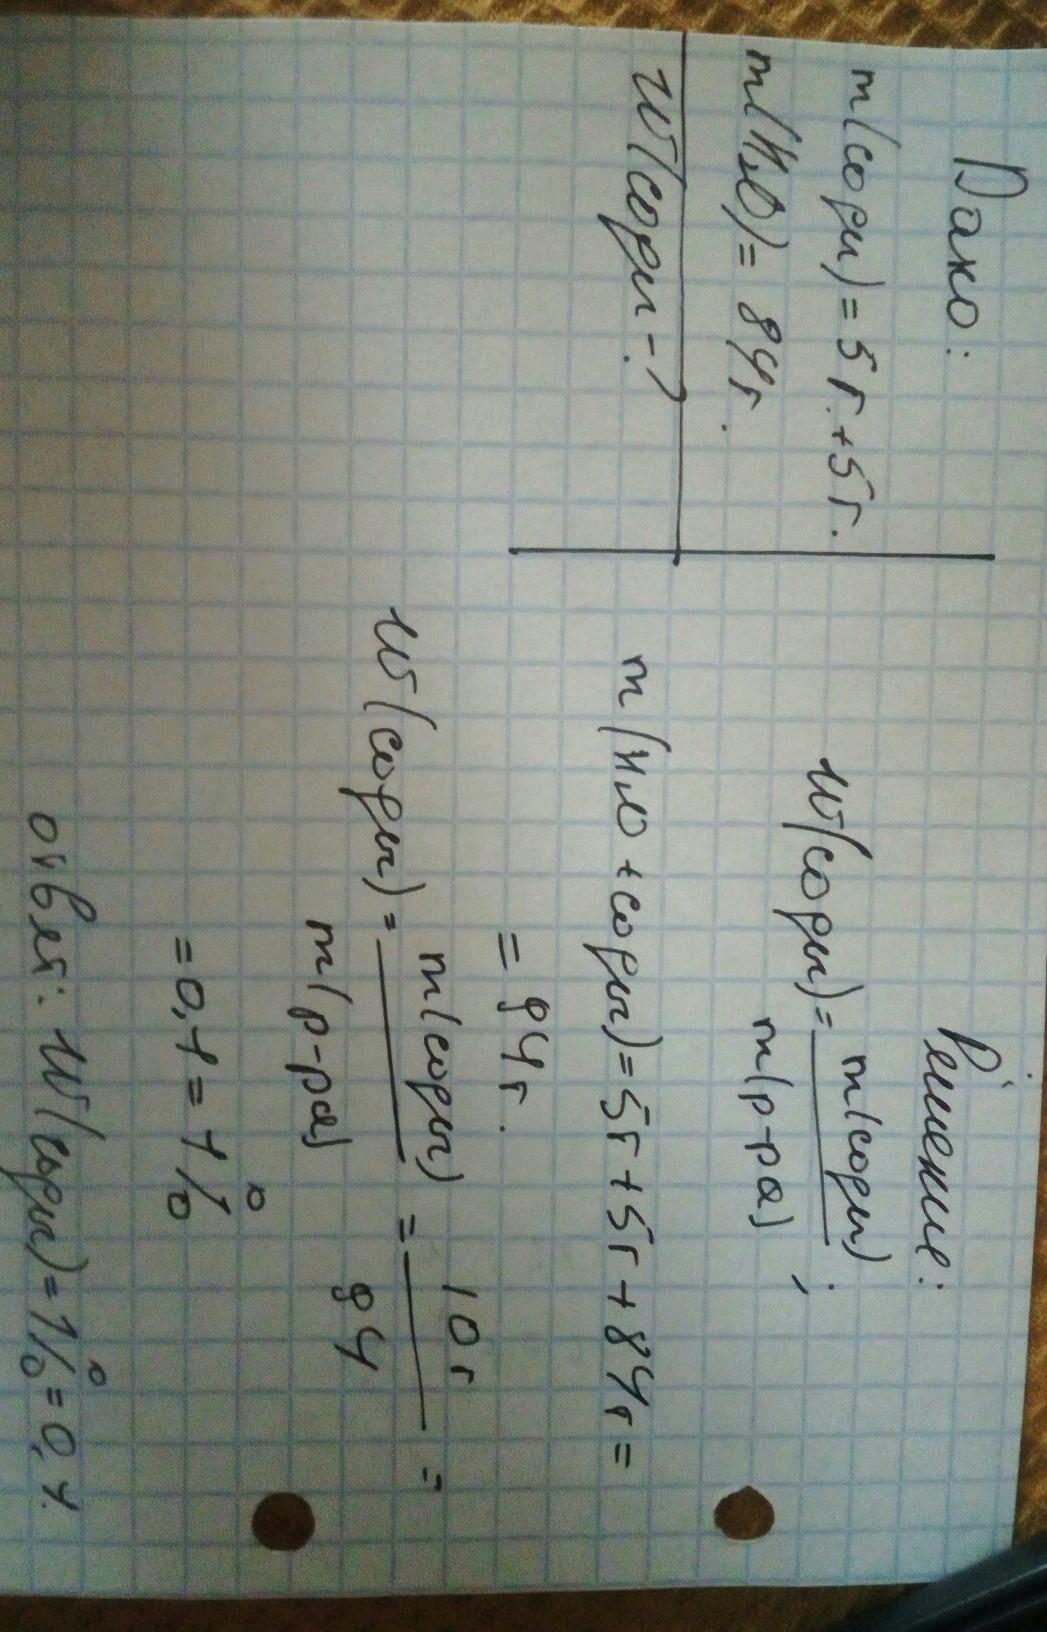 Дано:
m(соды) = 5 г. + 5 г.
m(H₂O) = 84 г.
W(соды - ?
Решение:
W(соды) = m(соды) / m(р-ра) ;
m(H₂O + соды) = 5 г + 5 г + 84 г =
= 94 г.
W(соды) = m(соды) / m(р-ра) = 10 г / 94 =
= 0,1 = 1%
ответ: W(соды) = 1% = 0,1.